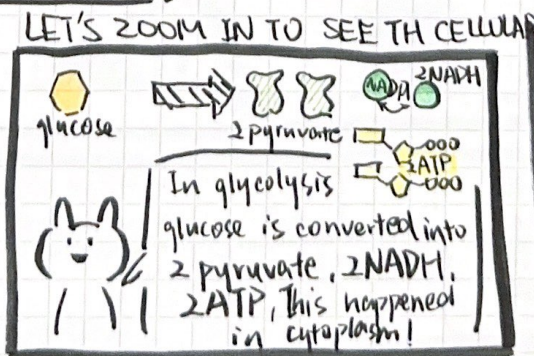 LET'S ZOOM IN TO SEE TH CELLULA
glucose
2 pyruvate
NADH
2NADH
2ATP
In glycolysis
glucose is converted into
2 pyruvate, 2NADH,
2ATP, This happened
in cytoplasm!